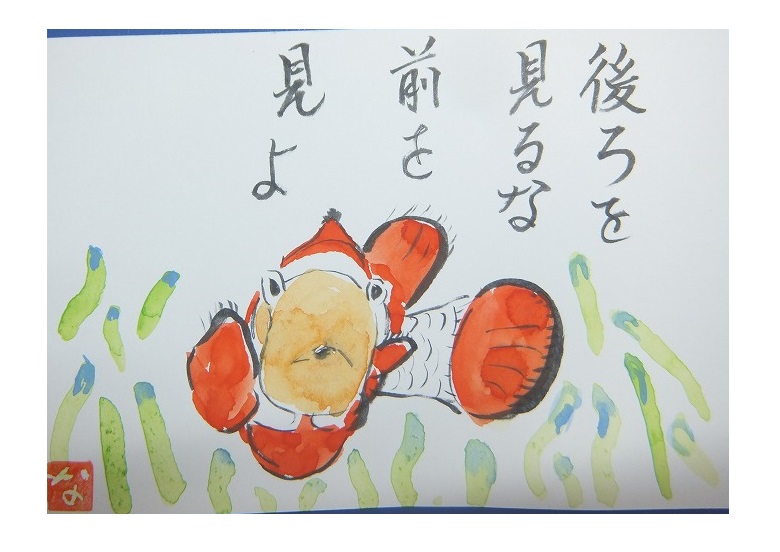 後ろを
見るな
前を
見よ